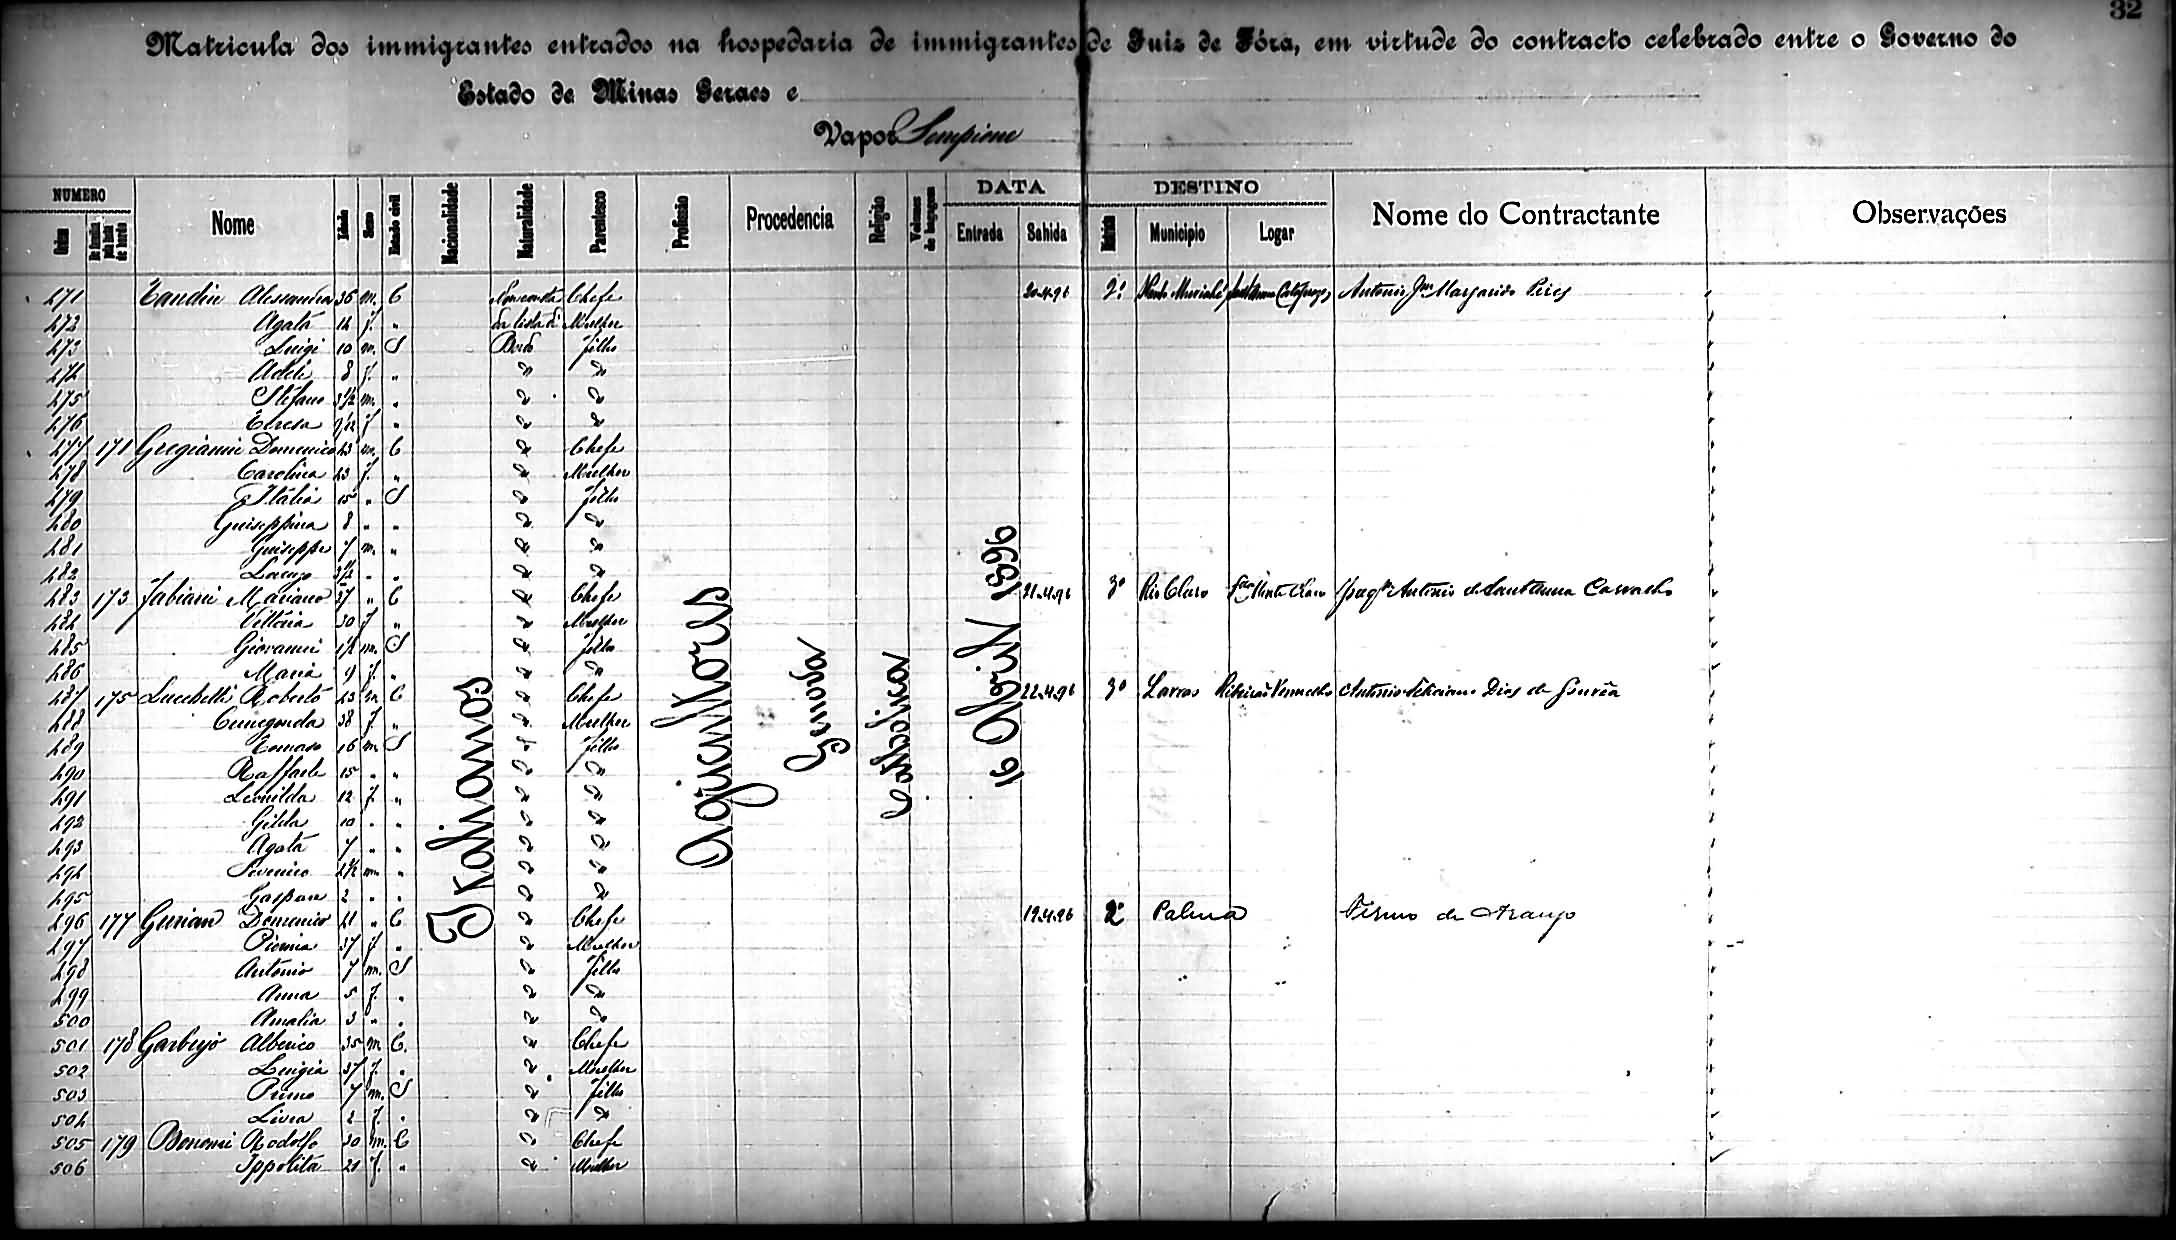 32
Matricula dos immigrantes entrados na hospedaria de immigrantes de Juiz de Fóra, em virtude do contracto celebrado entre o Governo do
Estado de Minas Geraes e
Vapor Sempione
NUMERO Nome Idade Sexo Estado civil Nacionalidade Naturalidade Parentesco Profissão Procedencia Religião Volumes de bagagem DATA DESTINO Nome do Contractante Observações
Ordem De familia pela lista de bordo Entrada Sahida Municipio Logar
Italianos
Agricultores
Genova
Catholica
16 Abril 1896
471 Alessandro 36 m. C Non consta Chefe 20-4-96 2ª Antonio Jm Margarido Pires
472 Agata f. " da lista di Mulher
473 Luigi 10 m. S Bordo filho
474 Adele 8 f. " " "
475 Stefano 3½ m. " " "
476 Teresa f " " "
477 171 Gregianin Domenico 43 m. C " Chefe
478 Carolina 43 f. " " Mulher
479 Italia 15 " S " filho
480 Guiseppina 8 " " " "
481 Guiseppe 7 m. " " "
482 3½ " " " "
483 173 Fabiani Mariano 37 " C " Chefe 21-4-96 3ª Rio Claro Antonio de Sant'Anna Carvalho
484 Vittoria 30 f " " Mulher
485 Giovanni m. S " filho
486 Maria 9 f. " " "
487 175 Lucchetti Roberto 43 m C " Chefe 22-4-96 3ª Lavras Ribeirão Vermelho Antonio Feliciano Dias de Gouvêa
488 Cunegonda 38 f " " Mulher
489 Tomaso 16 m S " filho
490 Raffaele 15 " " " "
491 Leonilda 12 f " " "
492 Gilda 10 " " " "
493 Agata 7 " " " "
494 Severino 4½ m. " " "
495 Gaspare 2 " " " "
496 177 Gurian Domenico 41 " C " Chefe 19-4-96 2ª Palma Firmo de Araujo
497 Pierina 37 f " " Mulher
498 Antonio 7 m. S " filho
499 Anna 5 f. " " "
500 Amalia 3 " " " "
501 178 Garbujo Alberico 35 m C. " Chefe
502 Luigia 37 f. " " Mulher
503 Primo 7 m. S " filho
504 Livia 2 f. " " "
505 179 Bononi Rodolfo 30 m. C " Chefe
506 Ippolita 21 f. " " Mulher